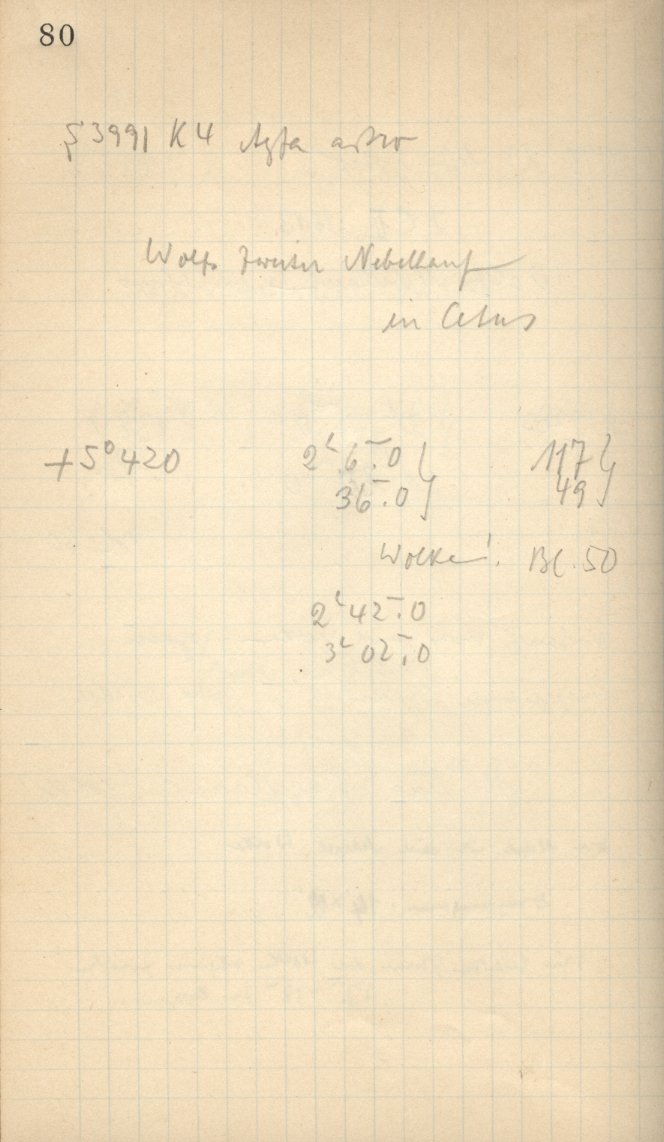 80
3991 K4 Agfa astro
Wolfs zweiter Nebelhauf
in Cetus
+5°420 2ʰ 6ᵐ.0 117
36ᵐ.0 49
Wolke! Bl. 50
2ʰ 42ᵐ.0
3ʰ 02ᵐ.0